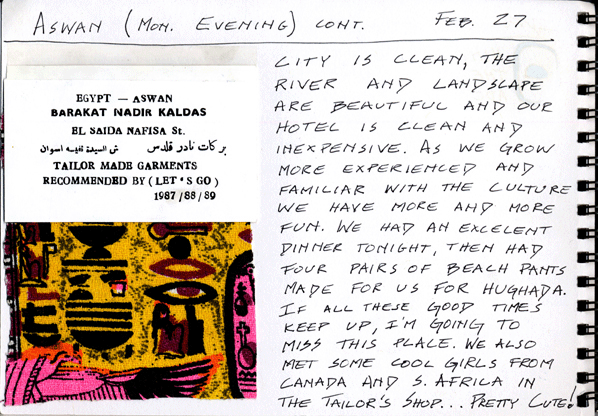 ASWAN (MON. EVENING) CONT. FEB. 27
EGYPT — ASWAN
BARAKAT NADIR KALDAS
EL SAIDA NAFISA St.
بركات نادر قلدس ش السيدة نفيسه اسوان
TAILOR MADE GARMENTS
RECOMMENDED BY ( LET'S GO )
1987/88/89
CITY IS CLEAN, THE
RIVER AND LANDSCAPE
ARE BEAUTIFUL AND OUR
HOTEL IS CLEAN AND
INEXPENSIVE. AS WE GROW
MORE EXPERIENCED AND
FAMILIAR WITH THE CULTURE
WE HAVE MORE AND MORE
FUN. WE HAD AN EXCELENT
DINNER TONIGHT, THEN HAD
FOUR PAIRS OF BEACH PANTS
MADE FOR US FOR HUGHADA.
IF ALL THESE GOOD TIMES
KEEP UP, I'M GOING TO
MISS THIS PLACE. WE ALSO
MET SOME COOL GIRLS FROM
CANADA AND S. AFRICA IN
THE TAILOR'S SHOP... PRETTY CUTE!